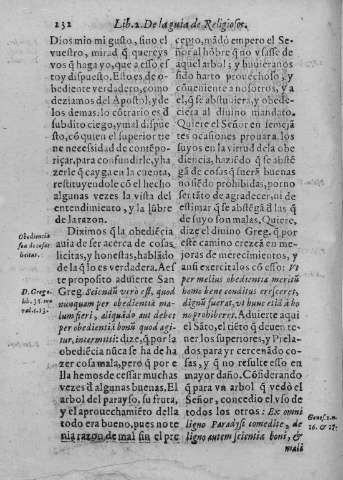 232 Lib.2. De la guia de Religiosos.
Dios mio mi gusto, sino el
vuestro, mirad q̃ quereys
vos q̃ haga yo, que a esso es
toy dispuesto. Esto es, de o-
bediente verdadero, como
deziamos del Apostol, y de
los demas: lo cõtrario es ď
subdito ciego, y mal dispue
sto, cõ quien el superior tie
ne necessidad de contẽpo-
riçar, para cõfundirle, y ha
zerle q̃ cayga en la cuenta,
restituyendole cõ el hecho
algunas vezes la vista del
entendimiento, y la lũbre
de la razon.
Obediencia
sea de cosas
licitas.
Diximos q̃ la obediẽcia
auia de ser acerca de cosas
licitas, y honestas, hablãdo
de la q̃ lo es verdadera. A es
te proposito aduierte San
D. Grego.
lib. 35. mo
ral. c. 13.
Greg. Sciendũ vero est, quod
nunquam per obedientiã ma-
lum fieri, aliquãdo aut debet
per obedientiã bonũ quod agi-
tur, intermitti: dize, q̃ por la
obediẽcia nũca se ha de ha
zer cosa mala, però q̃ por e
lla hemos de cessar muchas
vezes ď algunas buenas. El
arbol del parayso, su fruta,
y el aprouechamiẽto della
todo era bueno, pues no te
nia razon de mal sin el pre
cepto, mãdò empero el Se-
ñor al hõbre q̃ no vsasse de
aquel arbol; y huuierãnos
sido harto prouechoso, y
cõueniente a nosotros, y a
el, q̃ se abstuuiera, y obede-
ciera al diuino mandato.
Quiere el Señor en semejã
tes ocasiones prouar a los
suyos en la virtud de la obe
diencia, haziẽdo q̃ se abstẽ
gã de cosas q̃ suerã buenas
no siẽdo prohibidas, por no
ser tãto de agradecer, ni de
estimar q̃ se abstẽgã ď las q̃
de suyo son malas. Quiere,
dize el diuino Greg. q̃ por
este camino crezcã en me-
joras de merecimientos, y
ansi exercitalos cõ esso: Vt
per melius obedientiæ meritũ
homo bene conditus resijceret,
dignũ fuerat, vt hunc etiã à bo
no prohiberet. Aduierte aqui
el Sãto, el tiẽto q̃ deuen te-
ner los superiores, y Prela-
dos para yr cercenãdo co-
sas, y q̃ no resulte esso en
mayor daño. Cõsiderando
q̃ para vn arbol q̃ vedò el
Señor, concedio el vso de
todos los otros: Ex omni
Genes. 2. n.
16. & 17.
ligno Paradysi comedite, de
ligno autem scientiæ boni, &
mali